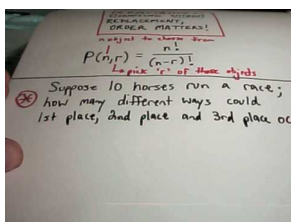 REPLACEMENT,
ORDER MATTERS!
n object to choose from
P(n,r) = n! / (n-r)!
pick 'r' of those objects
Suppose 10 horses run a race;
how many different ways could
1st place, 2nd place and 3rd place oc